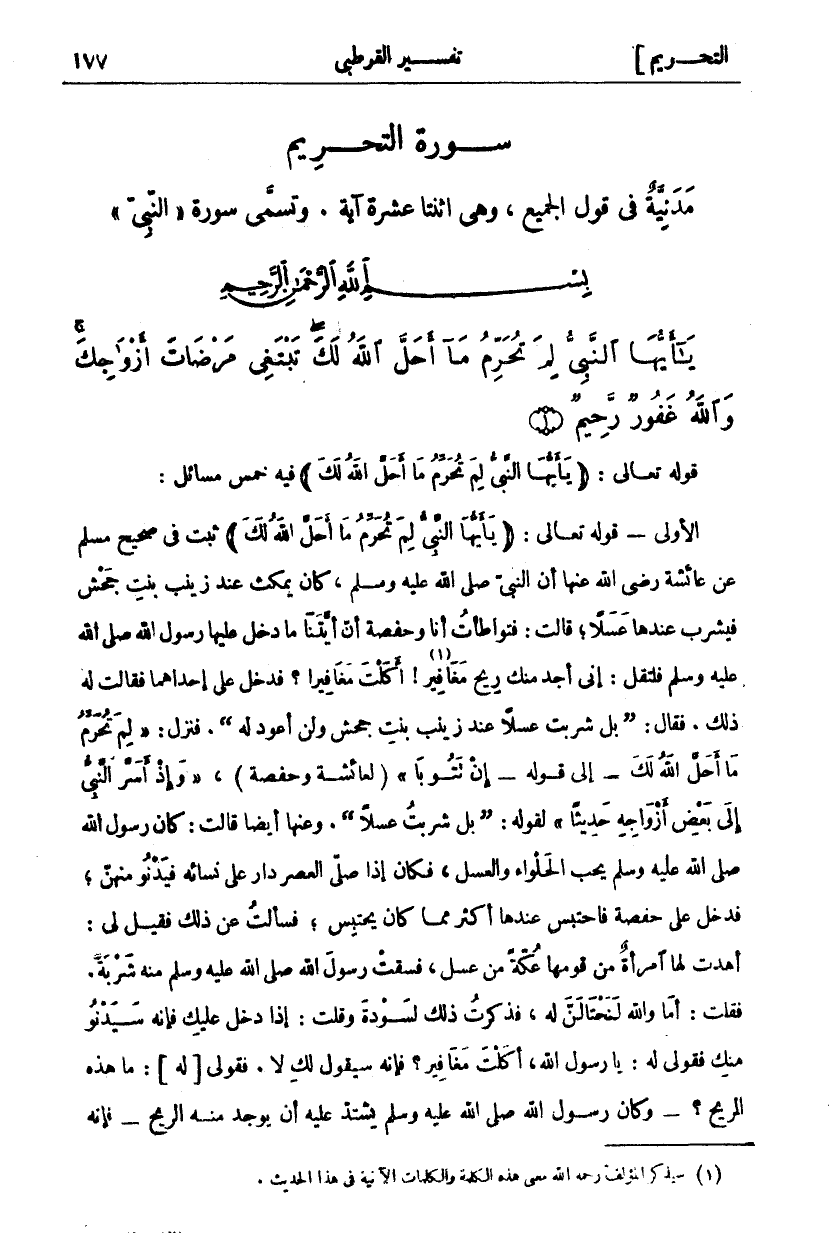 التحـــريم ]	تفســـير القرطبى	١٧٧
ســـورة التحـــريم
مَدَنِيَّةٌ فى قول الجميع ، وهى اثنتا عشرة آية . وتسمَّى سورة « النّبِىّ »
بِسْـــمِ ٱللَّهِ ٱلرَّحْمَٰنِ ٱلرَّحِيمِ
يَٰٓأَيُّهَا ٱلنَّبِىُّ لِمَ تُحَرِّمُ مَآ أَحَلَّ ٱللَّهُ لَكَۖ تَبْتَغِى مَرْضَاتَ أَزْوَٰجِكَۚ
وَٱللَّهُ غَفُورٌ رَّحِيمٌ ﴿١﴾
قوله تعـالى : ﴿ يَأَيُّهَـا النَّبِىُّ لِمَ تُحَرِّمُ مَا أَحَلَّ اللهُ لَكَ ﴾ فيه خمس مسائل :
الأولى — قوله تعـالى : ﴿ يَأَيُّهَا النَّبِىُّ لِمَ تُحَرِّمُ مَا أَحَلَّ اللهُ لَكَ ﴾ ثبت فى صحيح مسلم
عن عائشة رضى الله عنها أن النبىّ صلى الله عليه وسـلم ، كان يمكث عند زينب بنتِ جَحْش
فيشرب عندها عَسَلًا ؛ قالت : فتواطأتُ أنا وحفصة أنّ أيَّتَنَا ما دخل عليها رسول الله صلى الله
عليه وسلم فلتقل : إنى أجد منك رِيح مَغَافِير (١) ! أَكَلْتَ مَغَافِيرا ؟ فدخل على إحداهما فقالت له
ذلك . فقال : ” بل شربت عسلًا عند زينب بنتِ جحش ولن أعود له “ . فنزل : « لِمَ تُحَرِّمُ
مَا أَحَلَّ اللهُ لَكَ — إلى قـوله — إِنْ تَتُـوبَا » ( لعائشـة وحفصة ) ، « وَإِذْ أَسَرَّ النَّبِىُّ
إِلَى بَعْضِ أَزْوَاجِهِ حَدِيثًا » لقوله : ” بل شربتُ عسلًا “ . وعنها أيضا قالت : كان رسول الله
صلى الله عليه وسلم يحب الحَلْواء والعسل ، فـكان إذا صلّى العصر دار على نسائه فيَدْنُو منهنّ ؛
فدخل على حفصة فاحتبس عندها أكثر ممـا كان يحتبِس ؛ فسألتُ عن ذلك فقيـل لى :
أهدت لها ٱمرأةٌ من قومها عُكَّةً من عسل ، فسقتْ رسولَ الله صلى الله عليه وسلم منه شَرْبَةً .
فقلت : أمَا والله لَنَحْتَالَنَّ له ، فذكرتُ ذلك لسَوْدةَ وقلت : إذا دخل عليكِ فإنه سَـيَدْنُو
منكِ فقولى له : يا رسول الله ، أَكَلْتَ مَغَافِير ؟ فإنه سيقول لكِ لا . فقولى [ له ] : ما هذه
الريح ؟ — وكان رسـول الله صلى الله عليه وسلم يشتدّ عليه أن يوجد منـه الريح — فإنه
(١) سيذكر المؤلف رحمه الله معنى هذه الكلمة والكلمات الآتية فى هذا الحديث .